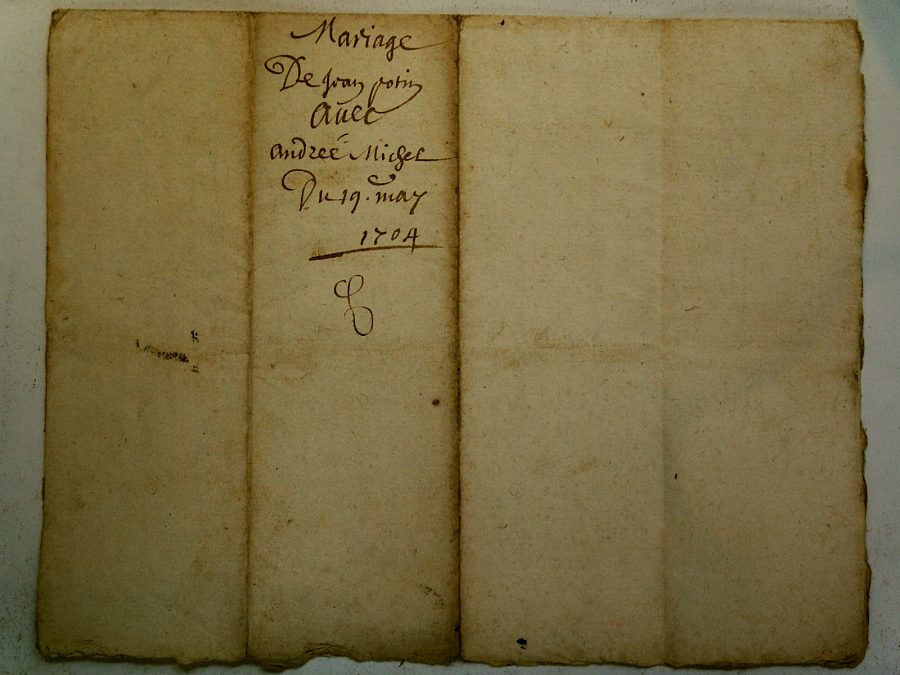 Mariage
De Jean potin
Auec
andreé Michel
Du 19. may
1704